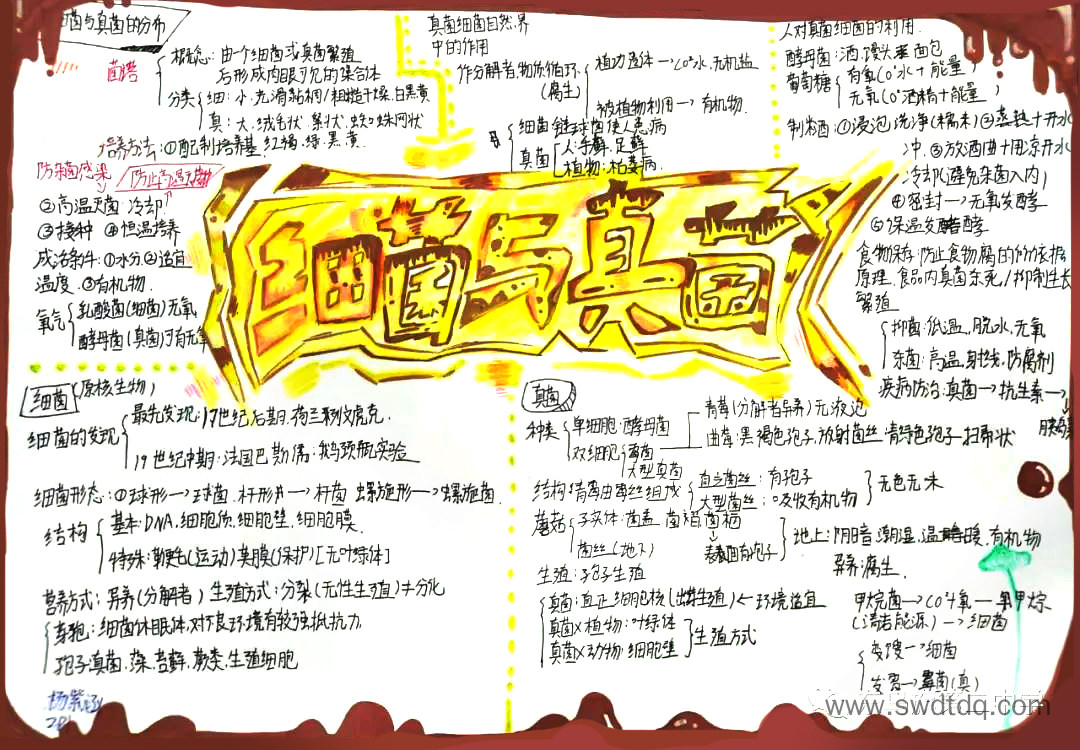 细菌与真菌的分布
菌落
概念:由个细菌或真菌繁殖
后形成肉眼可见的集合体
分类
细:小.光滑黏稠/粗糙干燥.白黑黄
真:大.绒毛状 絮状.蜘蛛网状
红褐.绿.黑.黄
培养方法:①配制培养基
防杂菌感染
防止高温
②高温灭菌 冷却
③接种 ④恒温培养
成活条件:①水分②适宜
温度.③有机物.
氧气
乳酸菌(细菌)无氧
酵母菌(真菌)可有无氧
真菌细菌自然界
中的作用
作分解者,物质循环
(腐生)
植动遗体→CO²水,无机盐
被植物利用→有机物.
细菌 链球菌使人患病
真菌
人:手癣,足癣
植物:病
人对真菌细菌的利用.
酵母菌:酒.馒头 面包
葡萄糖
有氧(O²水+能量)
无氧(O²酒精+能量)
制米酒:①浸泡.洗净(糯米)②蒸熟+开水
冲.③放酒曲+用凉开水
冷却(避免杂菌入内)
④密封→无氧发酵
⑤保温发酵
食物保存:防止食物腐的的依据
原理.食品内真菌杀死/抑制生长
繁殖
抑菌:低温,脱水,无氧
杀菌:高温,射线,防腐剂
疾病防治:真菌→抗生素→
细菌与真菌
细菌
(原核生物)
细菌的发现
最先发现:17世纪后期.荷兰列文虎克.
19世纪中期:法国巴斯德:鹅颈瓶实验
细菌形态:①球形→球菌.杆形→杆菌 螺旋形→螺旋菌.
结构
基本:DNA,细胞质,细胞壁,细胞膜.
特殊:鞭毛(运动)荚膜(保护)[无叶绿体]
营养方式:异养(分解者)生殖方式:分裂(无性生殖)≠分化
芽孢:细菌休眠体.对不良环境有较强抵抗力.
孢子:真菌.藻.苔藓.蕨类.生殖细胞
真菌
种类
单细胞:酵母菌
双细胞
霉菌
大型真菌
青霉(分解者异养)无液泡
曲霉:黑褐色孢子.放射菌丝:青绿色孢子—扫帚状
结构:青霉由霉丝组成
直立菌丝:有孢子
大型菌丝:吸收有机物
无色无味
蘑菇
子实体:菌盖 菌褶 菌柄
表面有孢子
菌丝(地下)
地上:阴暗.潮湿.温暖.有机物
异养腐生.
生殖:孢子生殖
真菌:真正细胞核(出芽生殖)←环境适宜
真菌×植物:叶绿体
真菌×动物:细胞壁
生殖方式
甲烷菌→CO²+氧—甲烷
(清洁能源)→细菌
变馊→细菌
发霉→霉菌(真)
杨紫涵
www.swdtdq.com